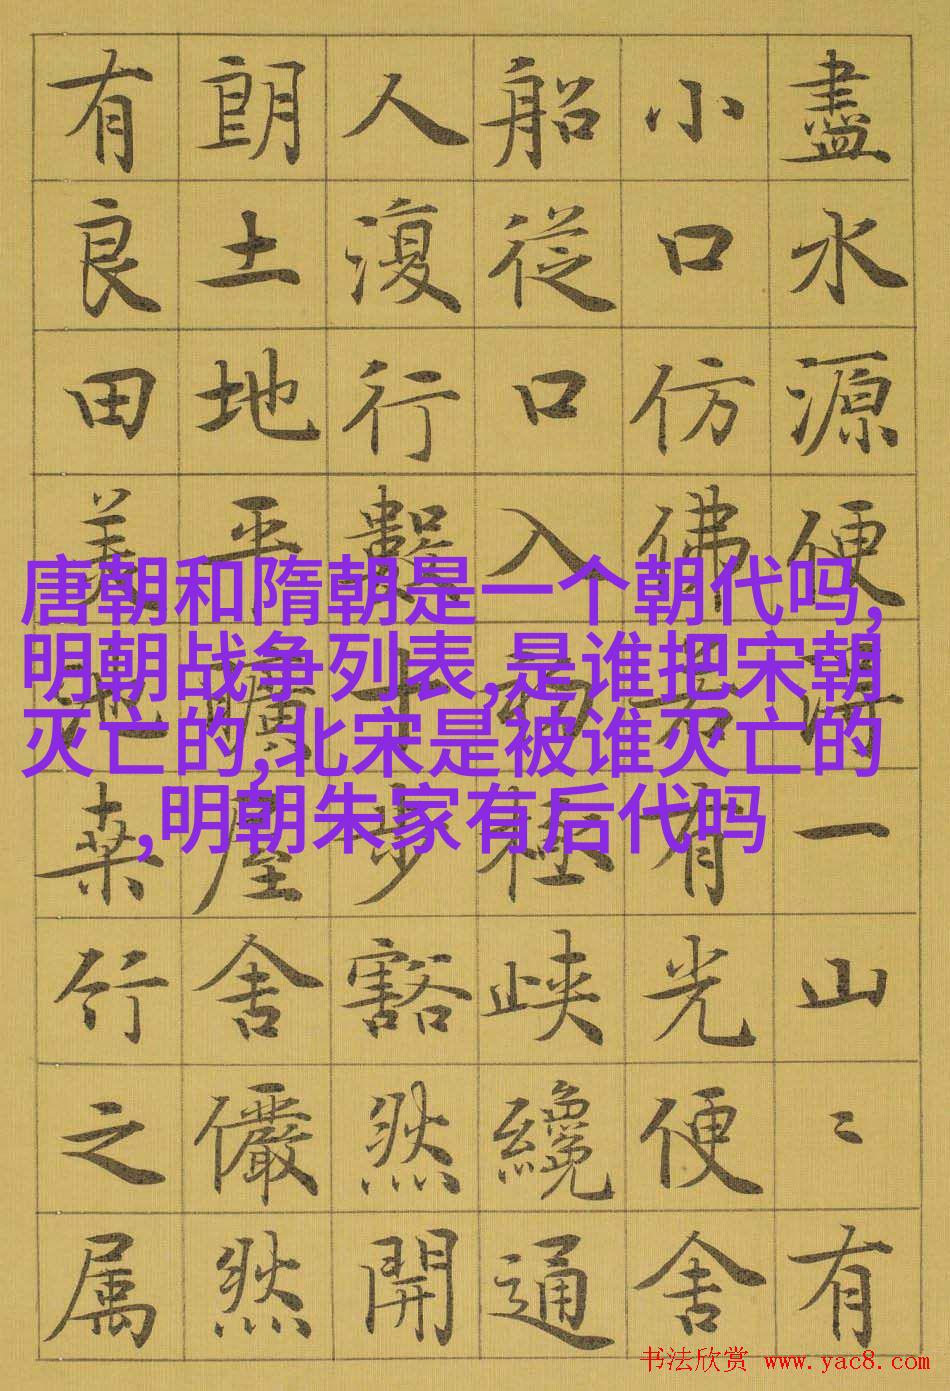 唐朝和隋朝是一个朝代吗,
明朝战争列表,是谁把宋朝
灭亡的,北宋是被谁灭亡的
,明朝朱家有后代吗
盡水源便得一山〻有
小口仿佛若有光便舍
船從口入初極峡纔通
人復行數十步豁然開
朗土地平曠屋舍儼然
有良田美池桑竹之属
书法欣赏 www.yac8.com